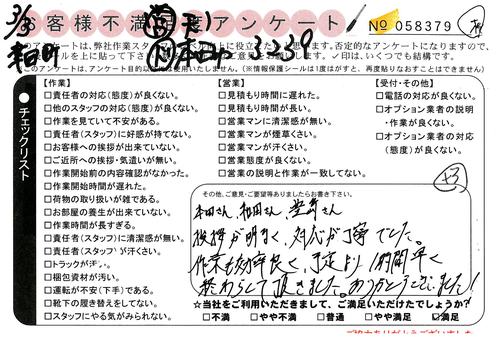 お客様不満足度アンケート
No 058379
3/3
このアンケートは、弊社作業スタ
否定的なアンケートになりますので、
✓印は、いくつでも結構です。
このアンケートは、アンケート目的以外に使用いたしません。(※情報保護シールは1度はがすと、再度貼りなおすことはできません)
チェックリスト
【作業】
□責任者の対応(態度)が良くない。
□他のスタッフの対応(態度)が良くない。
□作業を見ていて不安がある。
□責任者(スタッフ)に好感が持てない。
□お客様への挨拶が出来ていない。
□ご近所への挨拶・気遣いが無い。
□作業開始前の内容確認がなかった。
□作業開始時間が遅れた。
□荷物の取り扱いが雑である。
□お部屋の養生が出来ていない。
□作業時間が長すぎる。
□責任者(スタッフ)に清潔感が無い。
□責任者(スタッフ)が汗くさい。
□トラックが汚い。
□梱包資材が汚い。
□運転が不安(下手)である。
□靴下の履き替えをしてない。
□スタッフにやる気がみられない。
【営業】
□見積もり時間に遅れた。
□見積もり時間が長い。
□営業マンに清潔感が無い。
□営業マンが煙草くさい。
□営業マンが汗くさい。
□営業態度が良くない。
□営業の説明と作業が一致してない。
【受付・その他】
□電話の対応が良くない。
□オプション業者の説明
・作業が良くない。
□オプション業者の対応
(態度)が良くない。
+3
その他、ご意見・ご要望等ありましたらお書き下さい。
本田さん 和田さん
挨拶が明るく、対応が丁寧でした。
作業も効率良く、予定より1時間早く
終わらして頂きました。ありがとうございました!
☆当社をご利用いただきまして、ご満足いただけたでしょうか?
□不満 □やや不満 □普通 □やや満足 ☑満足
ご協力ありがとうございました